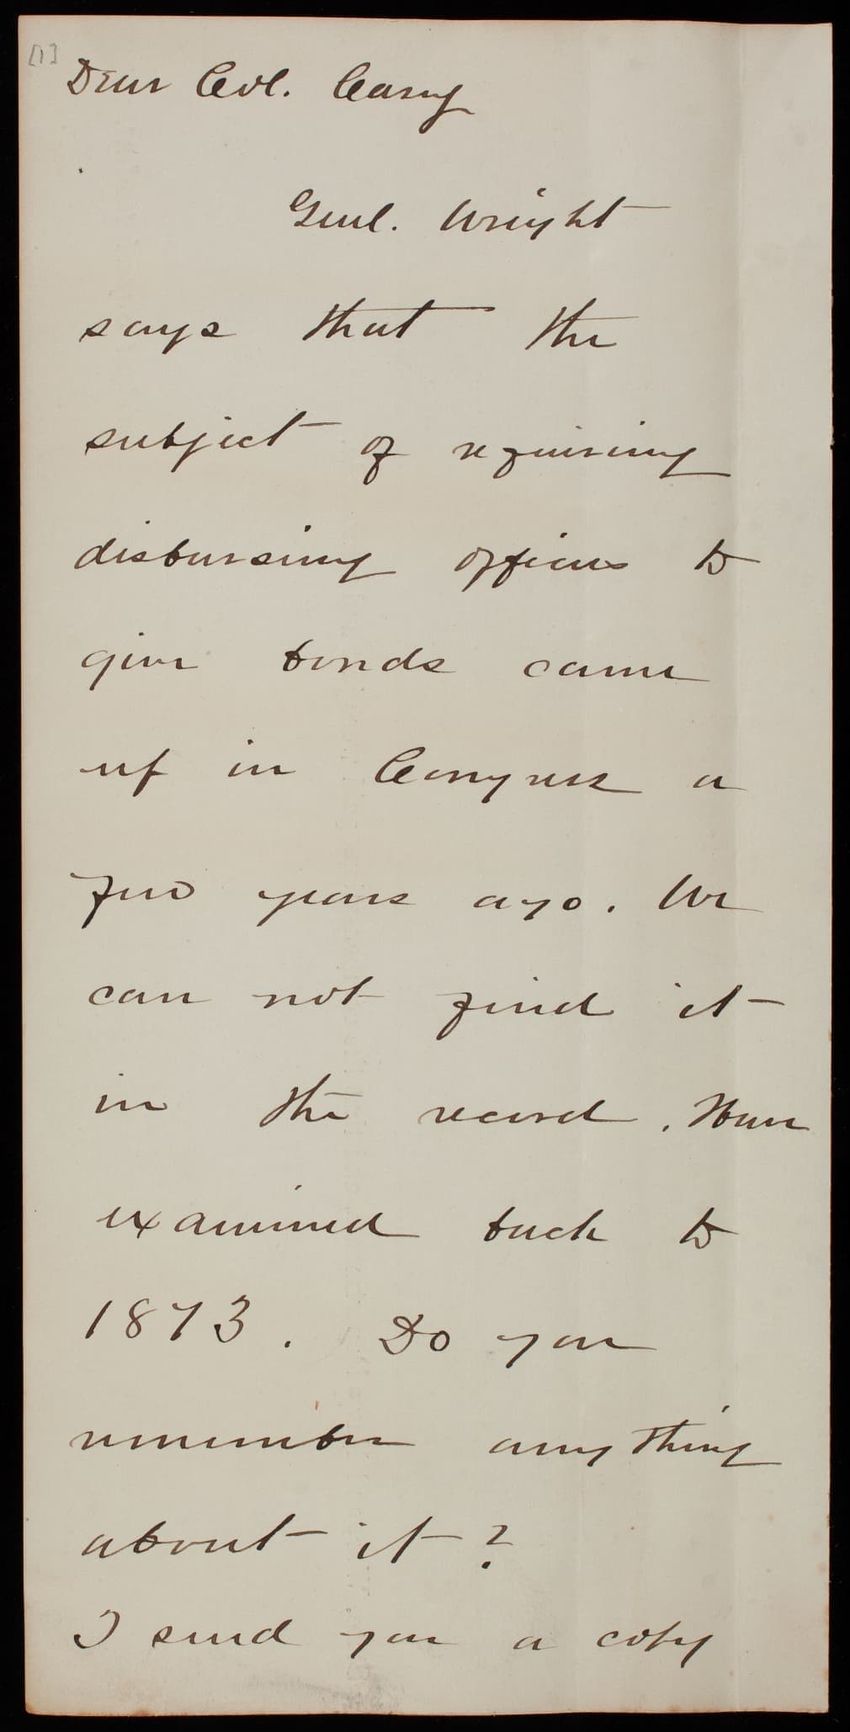 [1]
Dear Col. Casey
Genl. Wright
says that the
subject of requiring
disbursing officers to
give bonds came
up in Congress a
few years ago. We
can not find it
in the record. Have
examined back to
1873. Do you
remember anything
about it?
I send you a copy